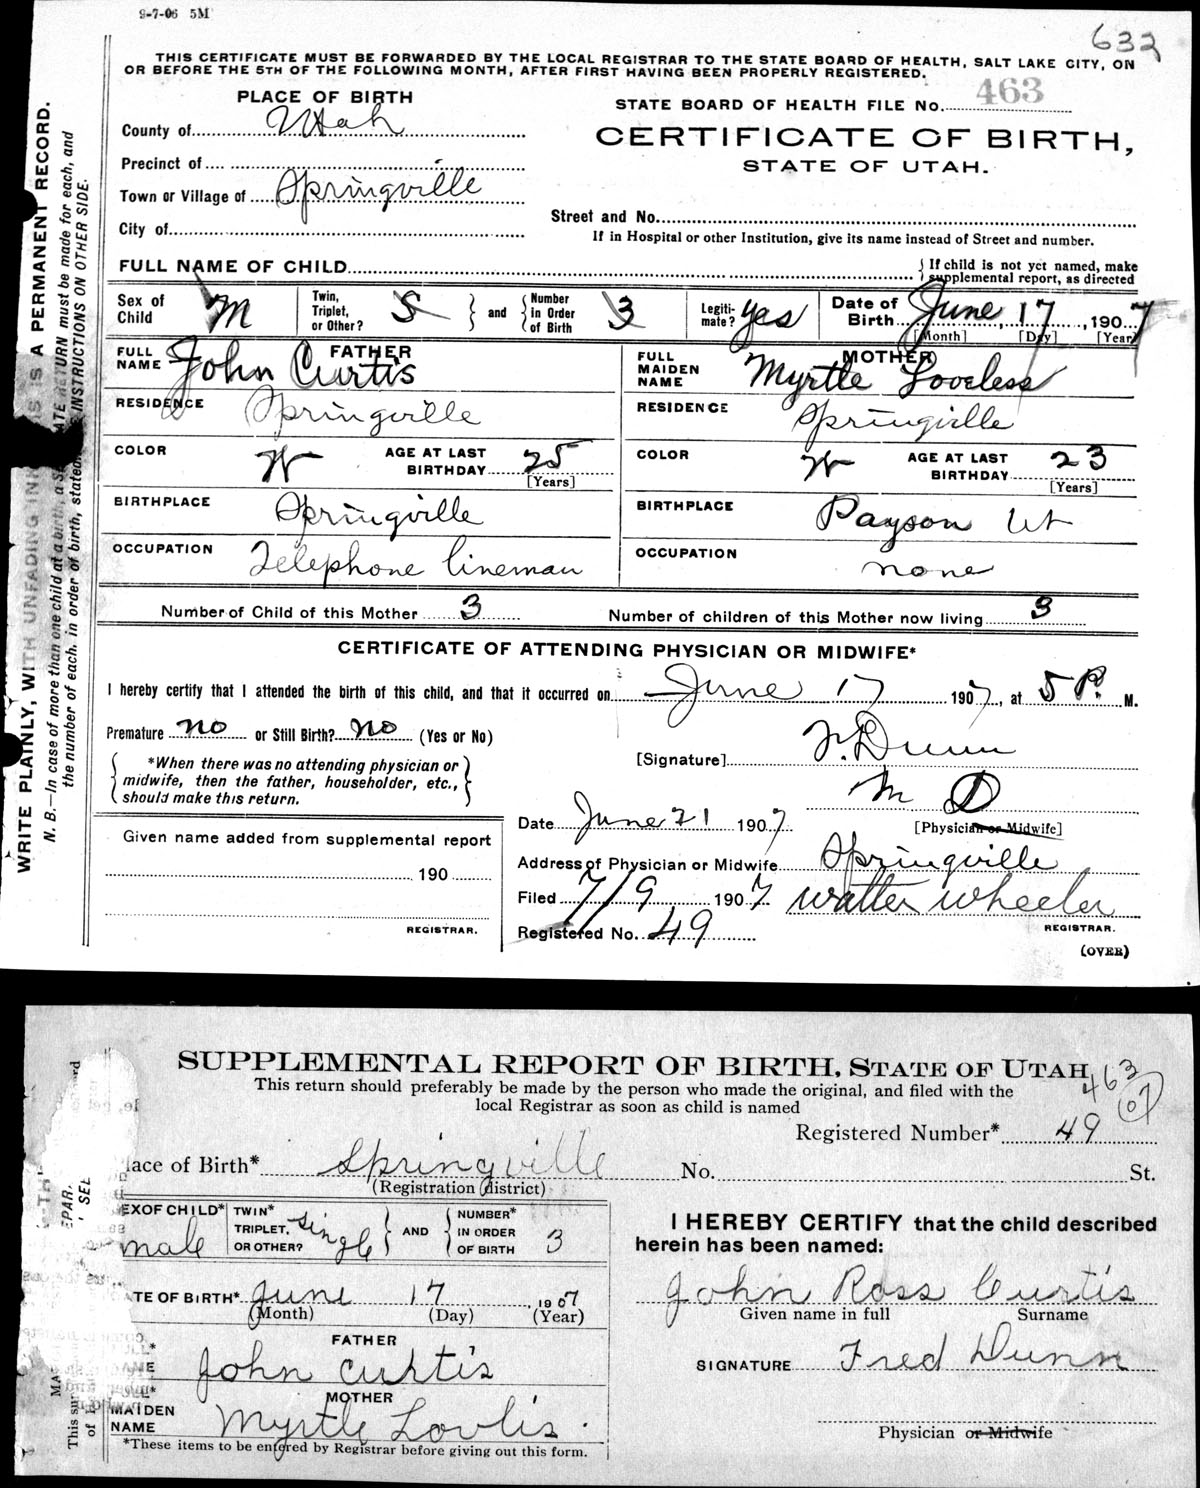 9-7-06 5M
632
THIS CERTIFICATE MUST BE FORWARDED BY THE LOCAL REGISTRAR TO THE STATE BOARD OF HEALTH, SALT LAKE CITY, ON
OR BEFORE THE 5TH OF THE FOLLOWING MONTH, AFTER FIRST HAVING BEEN PROPERLY REGISTERED.
PLACE OF BIRTH
STATE BOARD OF HEALTH FILE No. 463
County of Utah
CERTIFICATE OF BIRTH,
STATE OF UTAH.
Precinct of
Town or Village of Springville
Street and No.
City of
If in Hospital or other Institution, give its name instead of Street and number.
FULL NAME OF CHILD { If child is not yet named, make
supplemental report, as directed
Sex of Child M Twin, Triplet, or Other? S } and { Number in Order of Birth 3 Legiti-mate? yes Date of Birth June 17, 1907
[Month] [Day] [Year]
FATHER
FULL NAME John Curtis
MOTHER
FULL MAIDEN NAME Myrtle Loveless
RESIDENCE Springville
RESIDENCE Springville
COLOR W AGE AT LAST BIRTHDAY 25 [Years]
COLOR W AGE AT LAST BIRTHDAY 23 [Years]
BIRTHPLACE Springville
BIRTHPLACE Payson Ut
OCCUPATION Telephone lineman
OCCUPATION none
Number of Child of this Mother 3 Number of children of this Mother now living 3
CERTIFICATE OF ATTENDING PHYSICIAN OR MIDWIFE*
I hereby certify that I attended the birth of this child, and that it occurred on June 17 1907, at 5 P. M.
Premature no or Still Birth? no (Yes or No)
[Signature] F. Dunn
M D
[Physician or Midwife]
{ *When there was no attending physician or
midwife, then the father, householder, etc.,
should make this return. }
Date June 21 1907
Given name added from supplemental report
190
REGISTRAR.
Address of Physician or Midwife Springville
Filed 7/9 1907 Walter Wheeler
REGISTRAR.
Registered No. 49
(OVER)
WRITE PLAINLY, WITH UNFADING INK IS A PERMANENT RECORD.
N. B.—In case of more than one child at a birth, a SEPARATE RETURN must be made for each, and
the number of each, in order of birth, stated. INSTRUCTIONS ON OTHER SIDE.
SUPPLEMENTAL REPORT OF BIRTH, STATE OF UTAH
This return should preferably be made by the person who made the original, and filed with the
local Registrar as soon as child is named
463
07
Registered Number* 49
lace of Birth* Springville No. St.
(Registration district)
EX OF CHILD* male TWIN* TRIPLET, OR OTHER? Single } AND { NUMBER* IN ORDER OF BIRTH 3
I HEREBY CERTIFY that the child described
herein has been named:
TE OF BIRTH* June 17, 1907
(Month) (Day) (Year)
John Ross Curtis
Given name in full Surname
FATHER
NAME John Curtis
SIGNATURE Fred Dunn
MOTHER
MAIDEN NAME Myrtle Lovlis.
Physician or Midwife
*These items to be entered by Registrar before giving out this form.